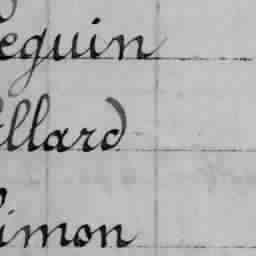 eguin
illard
imon